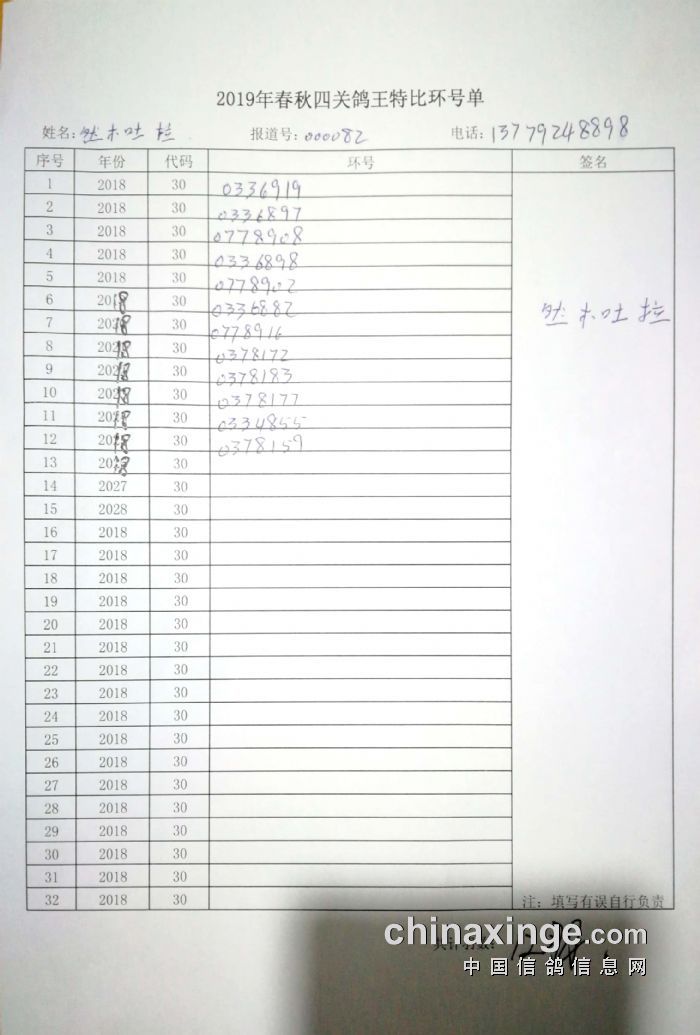 2019年春秋四关鸽王特比环号单
姓名:然木吐拉 报道号:000082 电话:13779248898
序号 年份 代码 环号 签名
1 2018 30 0336919
2 2018 30 0336897
3 2018 30 0778908
4 2018 30 0336898
5 2018 30 0778902
6 2018 30 0336882
然木吐拉
7 2018 30 0778916
8 2018 30 0378172
9 2018 30 0378183
10 2018 30 0378177
11 2018 30 0334855
12 2018 30 0378159
13 2018 30
14 2027 30
15 2028 30
16 2018 30
17 2018 30
18 2018 30
19 2018 30
20 2018 30
21 2018 30
22 2018 30
23 2018 30
24 2018 30
25 2018 30
26 2018 30
27 2018 30
28 2018 30
29 2018 30
30 2018 30
31 2018 30
32 2018 30 注:填写有误自行负责
共计羽数: 12羽
chinaxinge.com
中国信鸽信息网